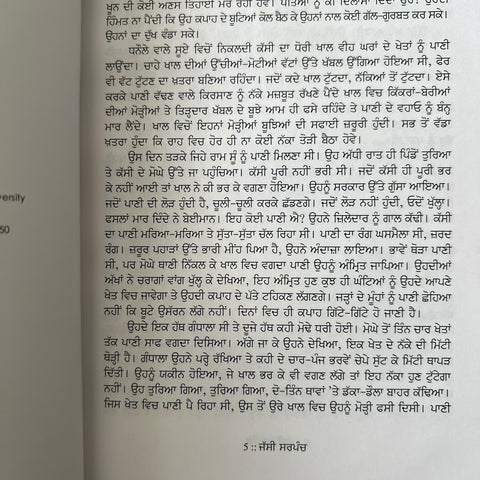 ਖੂਨ ਦੀ ਕੋਈ ਅਣਸ ਤਿਹਾਈ ਮਰ ਰਹੀ ਹੋਵੇ।
ਹਿੰਮਤ ਨਾ ਪੈਂਦੀ ਕਿ ਉਹ ਕਪਾਹ ਦੇ ਬੂਟਿਆਂ ਕੋਲ ਬੈਠ ਕੇ ਉਹਨਾਂ ਨਾਲ ਕੋਈ ਗੱਲ-ਗੁਰਬਤ ਕਰ ਸਕੇ।
ਉਹਨਾਂ ਦਾ ਦੁੱਖ ਵੰਡਾ ਸਕੇ।
ਧਨੌਲੇ ਵਾਲੇ ਸੂਏ ਵਿਚੋਂ ਨਿਕਲਦੀ ਕੱਸੀ ਦਾ ਧੋਰੀ ਖਾਲ ਵੀਹ ਘਰਾਂ ਦੇ ਖੇਤਾਂ ਨੂੰ ਪਾਣੀ
ਲਾਉਂਦਾ। ਚਾਹੇ ਖਾਲ ਦੀਆਂ ਉੱਚੀਆਂ-ਮੋਟੀਆਂ ਵੱਟਾਂ ਉੱਤੇ ਖੱਬਲ ਉੱਗਿਆ ਹੋਇਆ ਸੀ, ਫੇਰ
ਵੀ ਵੱਟ ਟੁੱਟਣ ਦਾ ਖ਼ਤਰਾ ਬਣਿਆ ਰਹਿੰਦਾ। ਜਦੋਂ ਕਦੇ ਖਾਲ ਟੁੱਟਦਾ, ਨੱਕਿਆਂ ਤੋਂ ਟੁੱਟਦਾ। ਏਸੇ
ਕਰਕੇ ਪਾਣੀ ਵੱਢਣ ਵਾਲੇ ਕਿਰਸਾਣ ਨੂੰ ਨੱਕੇ ਮਜ਼ਬੂਤ ਰੱਖਣੇ ਪੈਂਦੇ ਖਾਲ ਵਿਚ ਕਿੱਕਰਾਂ-ਬੇਰੀਆਂ
ਦੀਆਂ ਮੋੜ੍ਹੀਆਂ ਤੇ ਤਿੜ੍ਹਦਾਰ ਖੱਬਲ ਦੇ ਬੂਝੇ ਆਮ ਹੀ ਫਸੇ ਰਹਿੰਦੇ ਤੇ ਪਾਣੀ ਦੇ ਵਹਾਓ ਨੂੰ ਬੰਨ੍ਹ
ਮਾਰ ਲੈਂਦੇ। ਖਾਲ ਵਿਚੋਂ ਇਹਨਾਂ ਮੋੜ੍ਹੀਆਂ ਬੂਝਿਆਂ ਦੀ ਸਫਾਈ ਜ਼ਰੂਰੀ ਹੁੰਦੀ। ਸਭ ਤੋਂ ਵੱਡਾ
ਖ਼ਤਰਾ ਹੁੰਦਾ ਕਿ ਰਾਹ ਵਿਚ ਹੋਰ ਹੀ ਨਾ ਕੋਈ ਨੱਕਾ ਤੋੜੀ ਬੈਠਾ ਹੋਵੇ।
ਉਸ ਦਿਨ ਤੜਕੇ ਜਿਹੇ ਰਾਮ ਸੂੰ ਨੂੰ ਪਾਣੀ ਮਿਲਣਾ ਸੀ। ਉਹ ਅੱਧੀ ਰਾਤ ਹੀ ਪਿੰਡੋਂ ਤੁਰਿਆ
ਤੇ ਕੱਸੀ ਦੇ ਮੋਘੇ ਉੱਤੇ ਜਾ ਪਹੁੰਚਿਆ। ਕੱਸੀ ਪੂਰੀ ਨਹੀਂ ਭਰੀ ਸੀ। ਜਦੋਂ ਕੱਸੀ ਹੀ ਪੂਰੀ ਭਰ
ਕੇ ਨਹੀਂ ਆਈ ਤਾਂ ਖਾਲ ਨੇ ਕੀ ਭਰ ਕੇ ਵਗਣਾ ਹੋਇਆ। ਉਹਨੂੰ ਸਰਕਾਰ ਉੱਤੇ ਗੁੱਸਾ ਆਇਆ।
ਜਦੋਂ ਪਾਣੀ ਦੀ ਲੋੜ ਹੁੰਦੀ ਹੈ, ਚੂਲੀ-ਚੂਲੀ ਕਰਕੇ ਛੱਡਣਗੇ। ਜਦੋਂ ਲੋੜ ਨਹੀਂ ਹੁੰਦੀ, ਓਦੋਂ ਖੁੱਲ੍ਹਾ।
ਫਸਲਾਂ ਮਾਰ ਦਿੰਦੇ ਨੇ ਬੇਈਮਾਨ। ਇਹ ਕੋਈ ਪਾਣੀ ਐ? ਉਹਨੇ ਜ਼ਿਲੇਦਾਰ ਨੂੰ ਗਾਲ ਕੱਢੀ। ਕੱਸੀ
ਦਾ ਪਾਣੀ ਮਰਿਆ-ਮਰਿਆ ਤੇ ਸੁੱਤਾ-ਸੁੱਤਾ ਚੱਲ ਰਿਹਾ ਸੀ। ਪਾਣੀ ਦਾ ਰੰਗ ਘਸਮੈਲਾ ਸੀ, ਜ਼ਰਦ
ਰੰਗ। ਜ਼ਰੂਰ ਪਹਾੜਾਂ ਉੱਤੇ ਭਾਰੀ ਮੀਂਹ ਪਿਆ ਹੈ, ਉਹਨੇ ਅੰਦਾਜ਼ਾ ਲਾਇਆ। ਭਾਵੇਂ ਥੋੜਾ ਪਾਣੀ
ਸੀ, ਪਰ ਮੋਘੇ ਥਾਣੀ ਨਿੱਕਲ ਕੇ ਖਾਲ ਵਿਚ ਵਗਦਾ ਪਾਣੀ ਉਹਨੂੰ ਅੰਮ੍ਰਿਤ ਜਾਪਿਆ। ਉਹਦੀਆਂ
ਅੱਖਾਂ ਨੇ ਚਰਾਗਾਂ ਵਾਂਗ ਖੁੱਲ੍ਹ ਕੇ ਦੇਖਿਆ, ਇਹ ਅੰਮ੍ਰਿਤ ਹੁਣ ਕੁਝ ਹੀ ਘੰਟਿਆਂ ਨੂੰ ਉਹਦੇ ਆਪਣੇ
ਖੇਤ ਵਿਚ ਜਾਵੇਗਾ ਤੇ ਉਹਦੀ ਕਪਾਹ ਦੇ ਪੱਤੇ ਟਹਿਕਣ ਲੱਗਣਗੇ। ਜੜ੍ਹਾਂ ਦੇ ਮੂੰਹਾਂ ਨੂੰ ਪਾਣੀ ਛੋਹਿਆ
ਨਹੀਂ ਕਿ ਬੂਟੇ ਉਸਰਨ ਲੱਗੇ ਨਹੀਂ। ਦਿਨਾਂ ਵਿਚ ਹੀ ਕਪਾਹ ਗਿੱਟੇ-ਗਿੱਟੇ ਹੋ ਜਾਣੀ ਹੈ।
ਉਹਦੇ ਇਕ ਹੱਥ ਗੰਧਾਲਾ ਸੀ ਤੇ ਦੂਜੇ ਹੱਥ ਕਹੀ ਮੋਢੇ ਧਰੀ ਹੋਈ। ਮੋਘੇ ਤੋਂ ਤਿੰਨ ਚਾਰ ਖੇਤਾਂ
ਤੱਕ ਪਾਣੀ ਸਾਫ ਵਗਦਾ ਦਿਸਿਆ। ਅੱਗੇ ਜਾ ਕੇ ਉਹਨੇ ਦੇਖਿਆ, ਇਕ ਖੇਤ ਦੇ ਨੱਕੇ ਦੀ ਮਿੱਟੀ
ਥੋੜ੍ਹੀ ਹੈ। ਗੰਧਾਲਾ ਉਹਨੇ ਪਰ੍ਹੇ ਰੱਖਿਆ ਤੇ ਕਹੀ ਦੇ ਚਾਰ-ਪੰਜ ਭਰਵੇਂ ਚੇਪੇ ਸੁੱਟ ਕੇ ਮਿੱਟੀ ਥਾਪੜ
ਦਿੱਤੀ। ਉਹਨੂੰ ਯਕੀਨ ਹੋਇਆ, ਜੇ ਖਾਲ ਭਰ ਕੇ ਵੀ ਵਗਣ ਲੱਗੇ ਤਾਂ ਇਹ ਨੱਕਾ ਹੁਣ ਟੁੱਟੇਗਾ
ਨਹੀਂ। ਉਹ ਤੁਰਿਆ ਗਿਆ, ਤੁਰਿਆ ਗਿਆ, ਦੋ-ਤਿੰਨ ਥਾਵਾਂ 'ਤੇ ਡੱਕਾ-ਡੋਲਾ ਬਾਹਰ ਕੱਢਿਆ।
ਜਿਸ ਖੇਤ ਵਿਚ ਪਾਣੀ ਪੈ ਰਿਹਾ ਸੀ, ਉਸ ਤੋਂ ਉਰੇ ਖਾਲ ਵਿਚ ਉਹਨੂੰ ਮੋੜ੍ਹੀ ਫਸੀ ਦਿਸੀ। ਪਾਣੀ
5 :: ਜੱਸੀ ਸਰਪੰਚ
versity
50